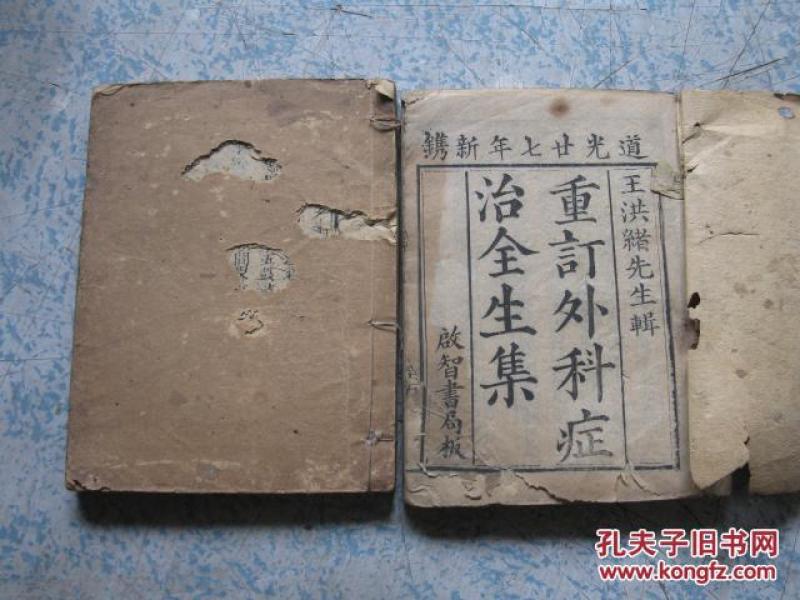 道光廿七年新鐫
王洪緒先生輯
重訂外科症
治全生集
啟智書局板
孔夫子旧书网
www.kongfz.com